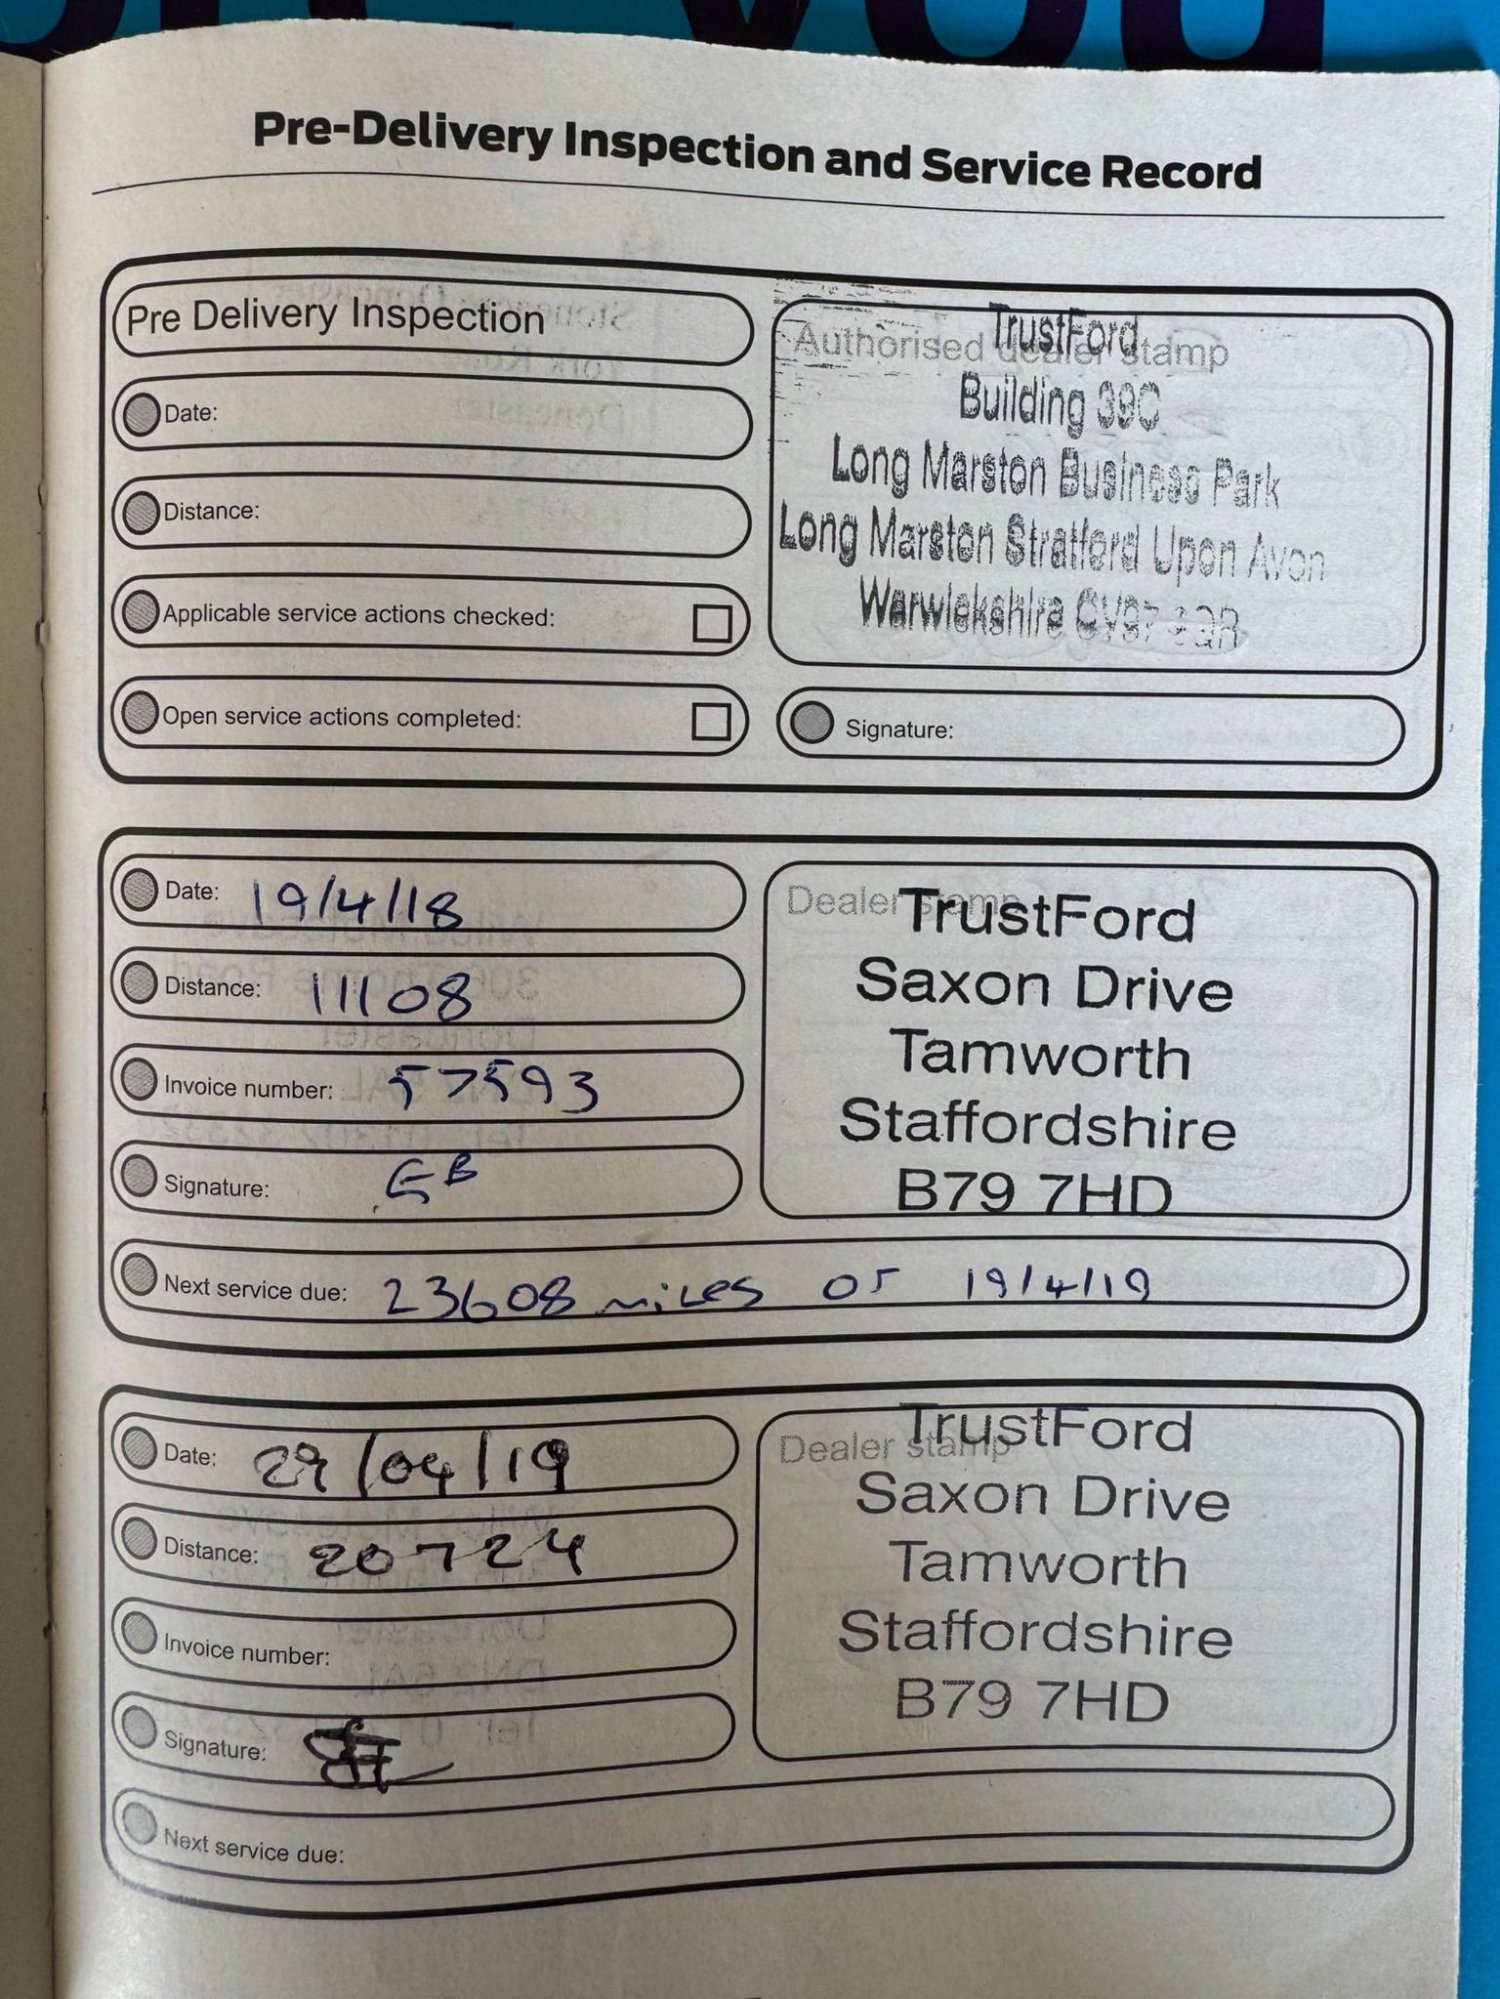 Pre-Delivery Inspection and Service Record
Pre Delivery Inspection
Date:
Distance:
Applicable service actions checked:
Open service actions completed:
Authorised dealer stamp
TrustFord
Building 39C
Long Marston Business Park
Long Marston Stratford Upon Avon
Warwickshire
Signature:
Date: 19/4/18
Distance: 11108
Invoice number: 57593
Signature: GB
Next service due: 23608 miles or 19/4/19
Dealer stamp
TrustFord
Saxon Drive
Tamworth
Staffordshire
B79 7HD
Date: 29/04/19
Distance: 20724
Invoice number:
Signature:
Next service due:
Dealer stamp
TrustFord
Saxon Drive
Tamworth
Staffordshire
B79 7HD